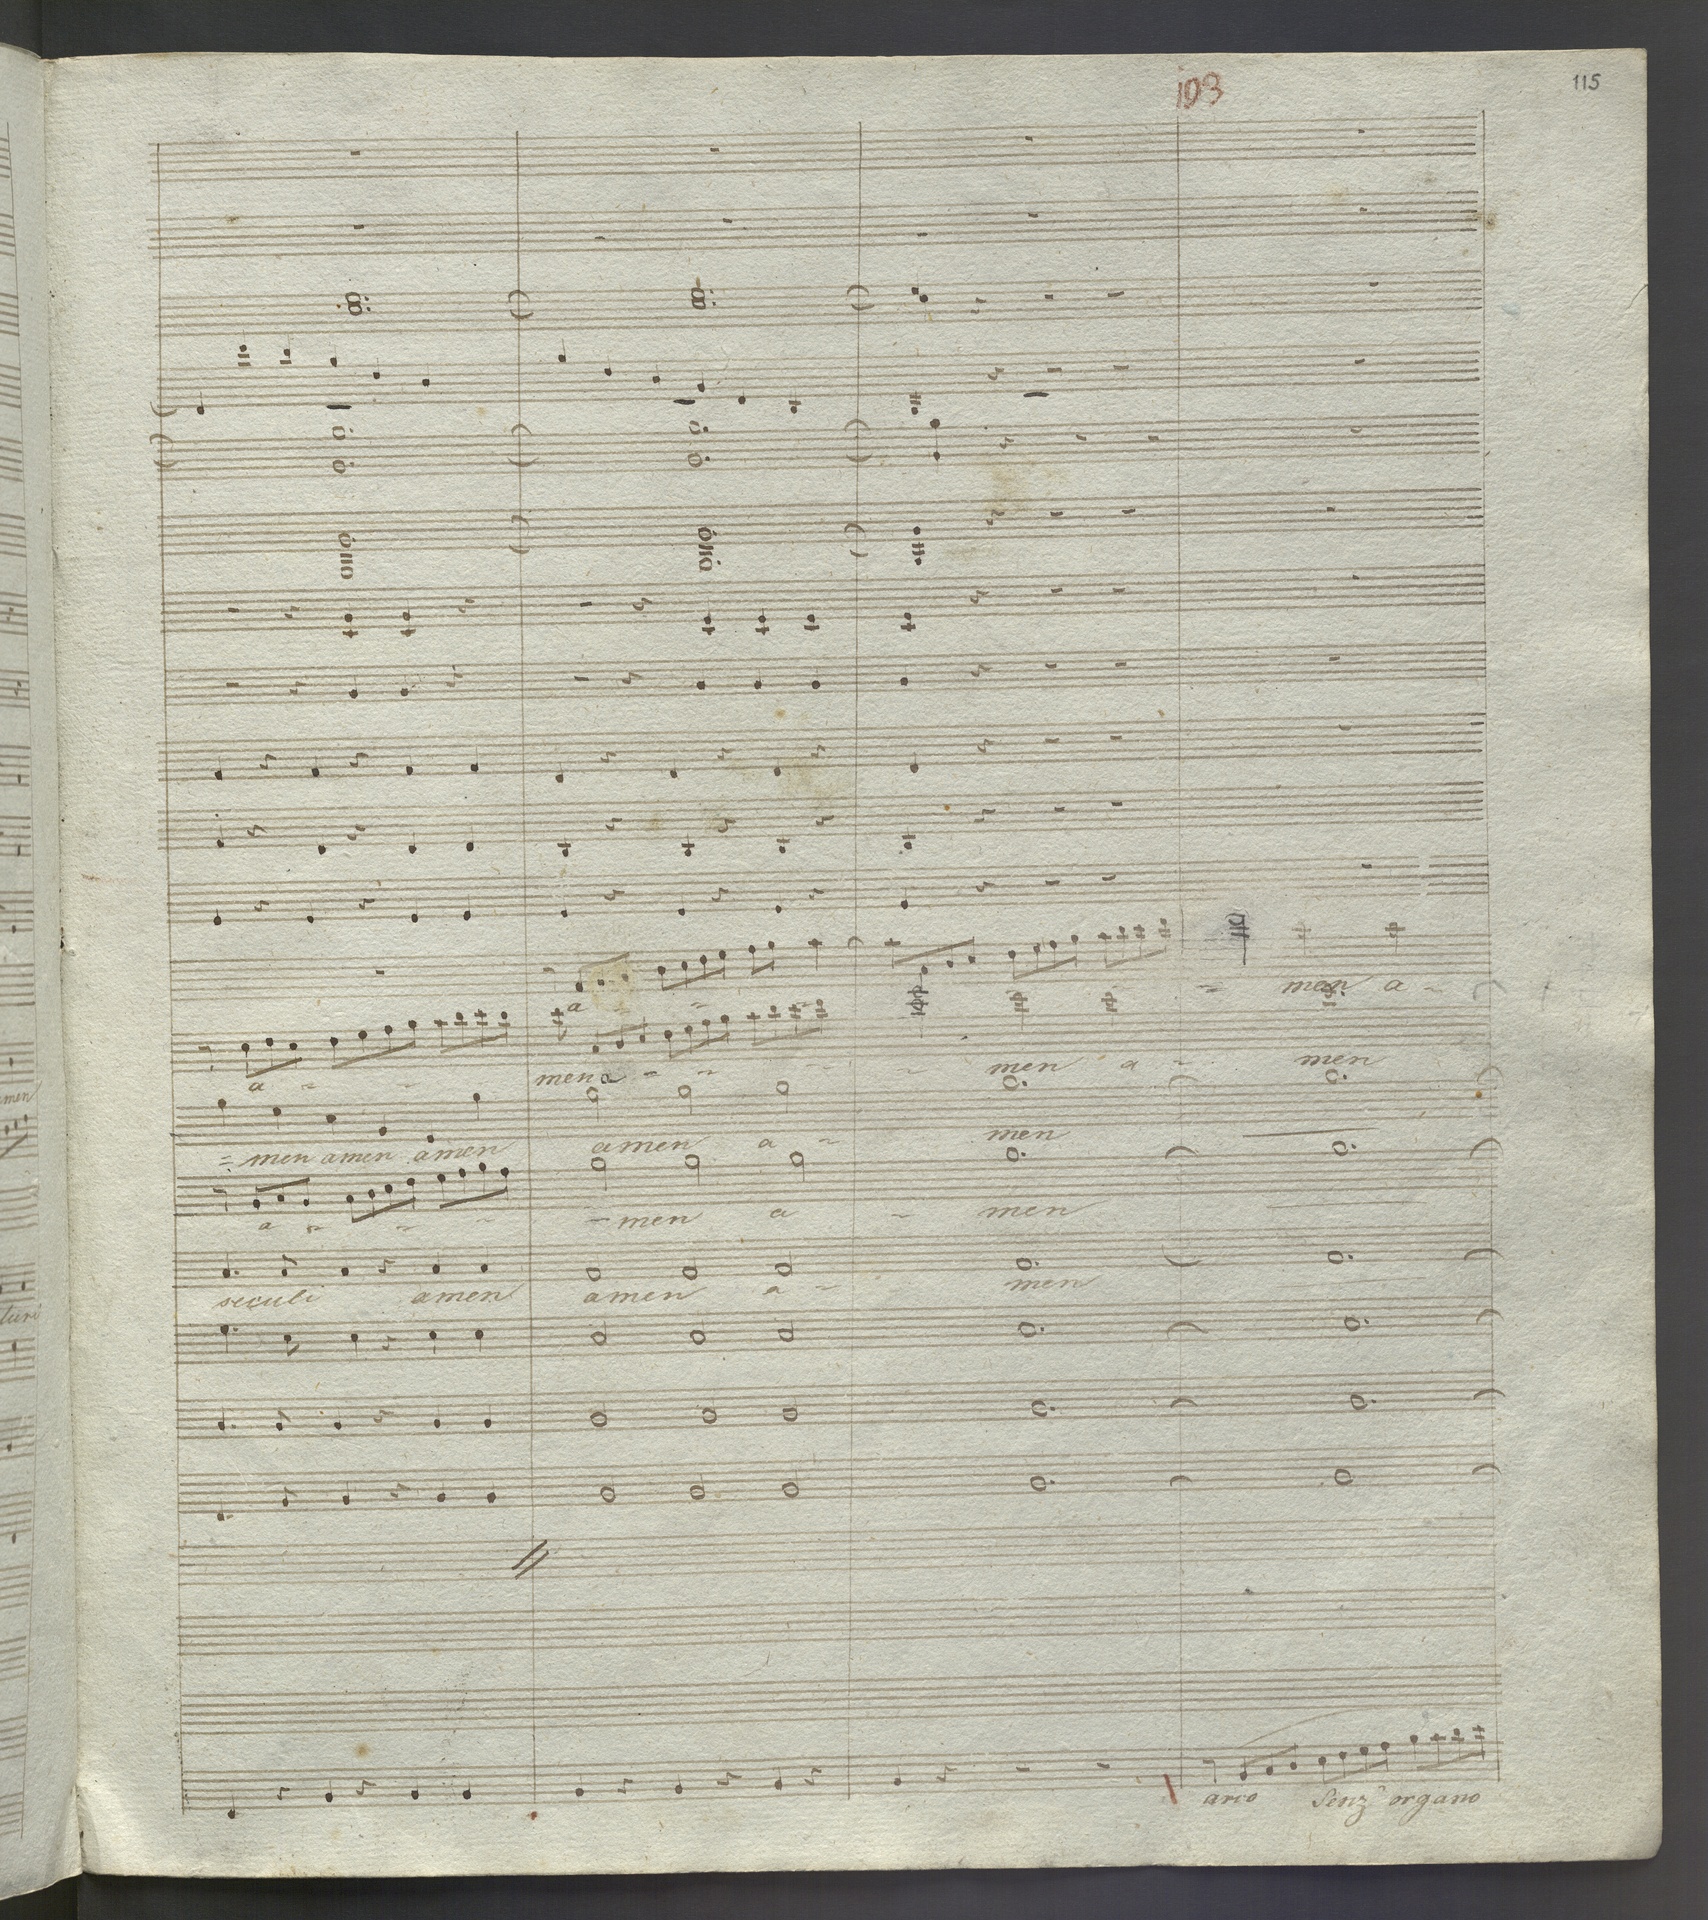 103
115
men a -
a - -
a - - men a - - - - men a - men
= men amen amen amen a - men
a - - - - men a - men
seculi amen amen a - men
arco Senz' organo